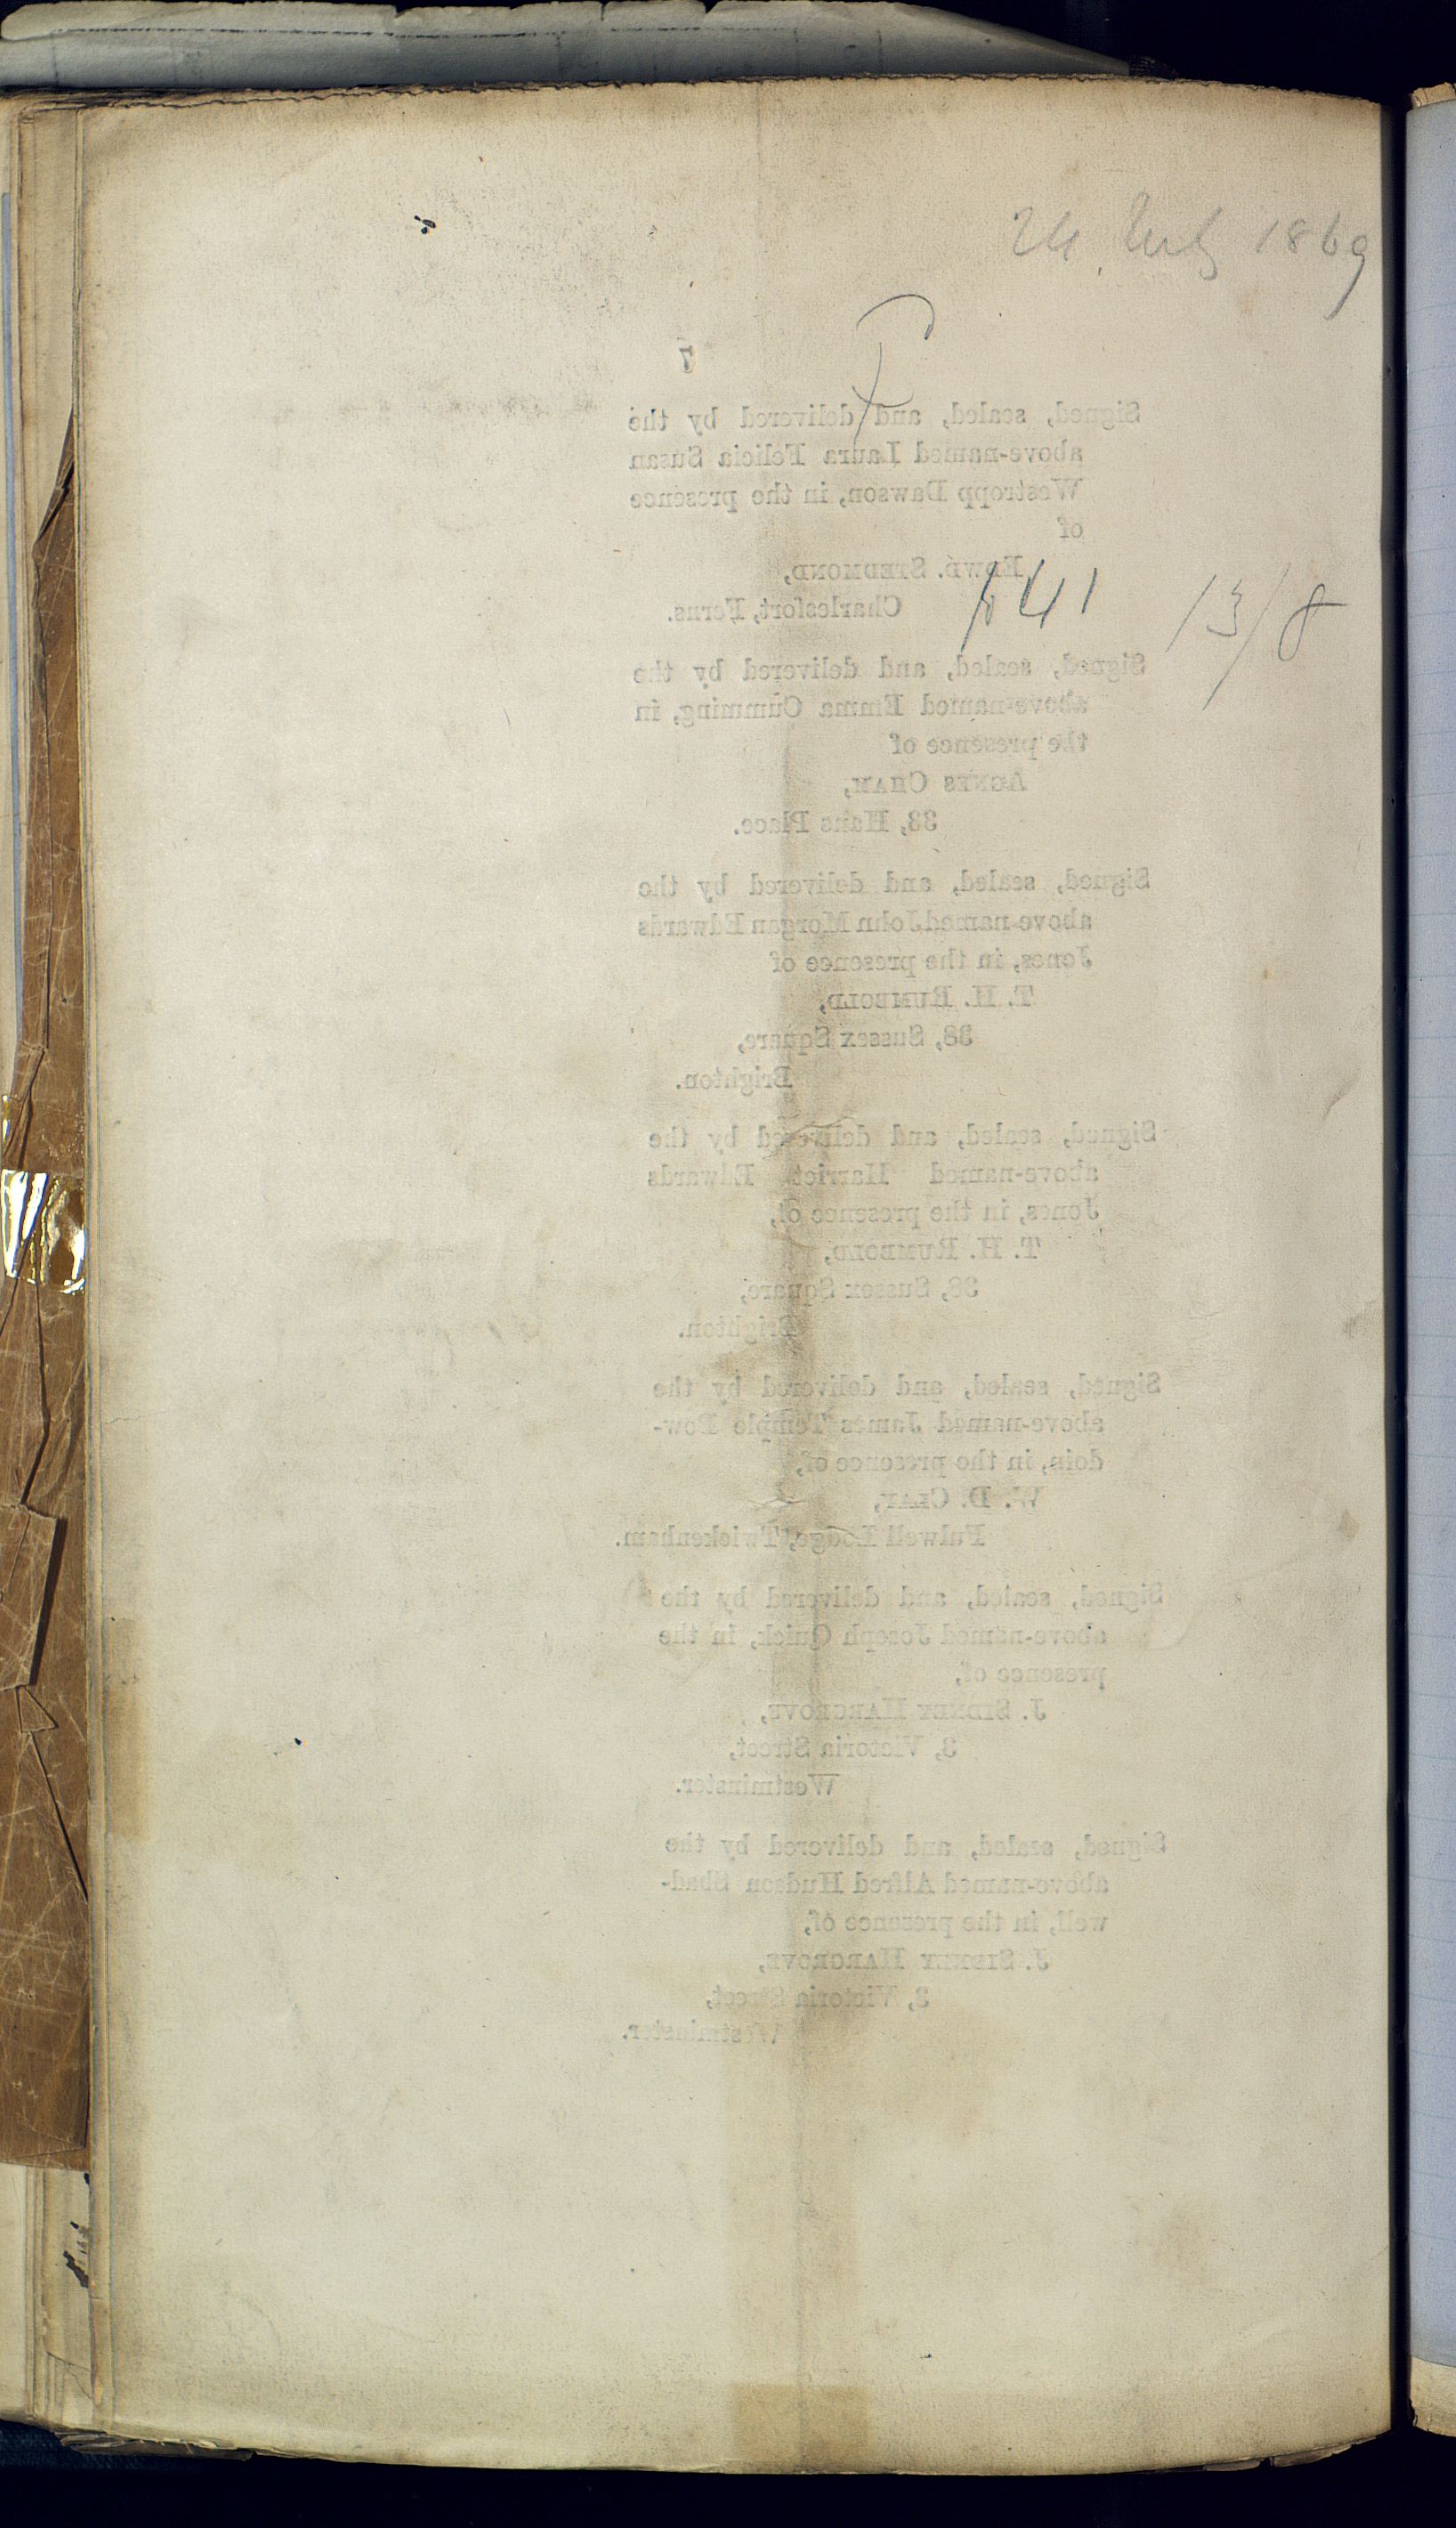 24 July 1869
7
Signed, sealed, and delivered by the
above-named Laura Felicia Susan
Westropp Dawson, in the presence
of
EDWD. STEDMOND,
Charlesfort, Ferns.
141 13/8
Signed, sealed, and delivered by the
above-named Emma Cumming, in
the presence of
AGNES CRAM,
33, Hans Place.
Signed, sealed, and delivered by the
above-named John Morgan Edwards
Jones, in the presence of
T. H. RUMBOLD,
38, Sussex Square,
Brighton.
Signed, sealed, and delivered by the
above-named Harriet Edwards
Jones, in the presence of,
T. H. RUMBOLD,
38, Sussex Square,
Brighton.
Signed, sealed, and delivered by the
above-named James Temple Bow-
doin, in the presence of,
W. D. CLAY,
Fulwell Lodge, Twickenham.
Signed, sealed, and delivered by the
above-named Joseph Quick, in the
presence of,
J. SIDNEY HARGROVE,
3, Victoria Street,
Westminster.
Signed, sealed, and delivered by the
above-named Alfred Hudson Shad-
well, in the presence of,
J. SIDNEY HARGROVE,
3, Victoria Street,
Westminster.